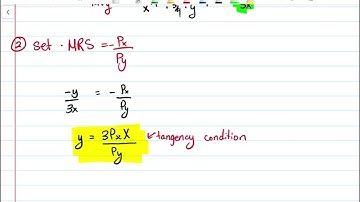 ② Set MRS = -Px/Py
-y/3x = -Px/Py
y = 3PxX/Py ← tangency condition